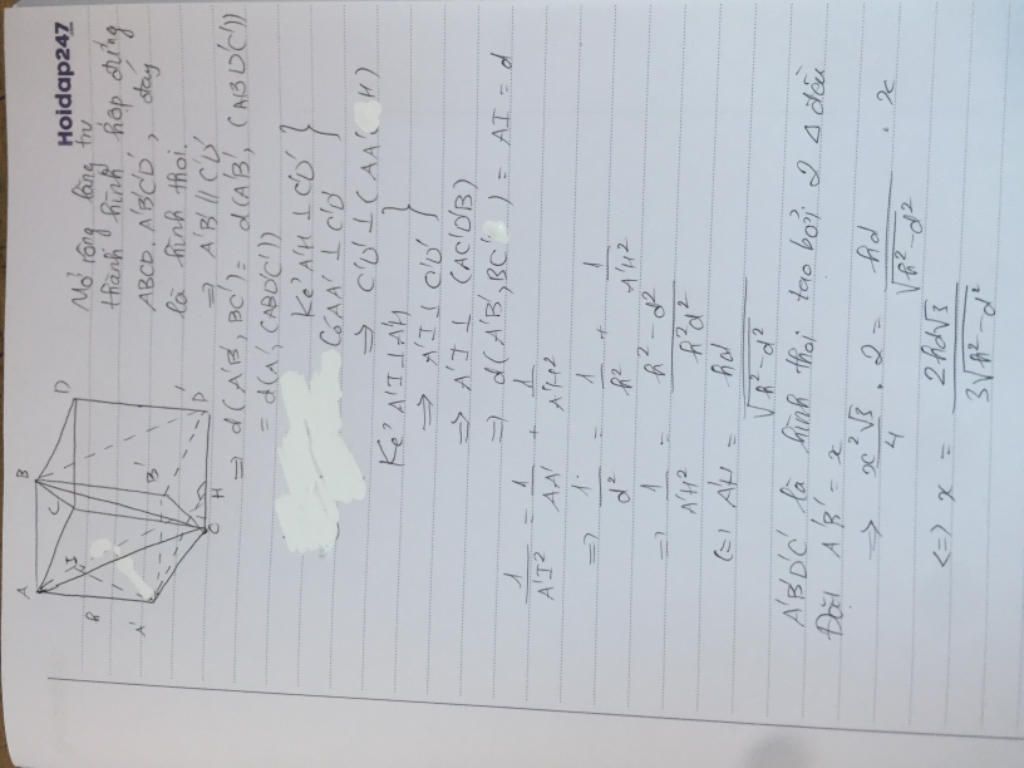 Hoidap247
Mở rộng lăng trụ
thành hình hộp đứng
ABCD. A'B'C'D', đáy
là hình thoi.
⇒ A'B' // C'D'
⇒ d(A'B, BC') = d(A'B', (ABD'C'))
= d(A', (ABD'C'))
Kẻ A'H ⊥ C'D' }
Có AA' ⊥ C'D }
⇒ C'D' ⊥ (AA' H)
Kẻ A'I ⊥ AH }
⇒ A'I ⊥ C'D' }
⇒ A'I ⊥ (AC'D'B)
⇒ d(A'B, BC') = AI = d
1/A'I² = 1/AA' + 1/A'H²
⇒ 1/d² = 1/h² + 1/A'H²
⇒ 1/A'H² = h² - d²/h²d²
(=) A'H = hd/√h²-d²
A'B'D'C' là hình thoi tạo bởi 2 Δ đều
Đặt A'B' = x
⇒ x²√3/4 . 2 = hd/√h²-d² . x
<=> x = 2hd√3/3√h²-d²
A
B
D
C
I
R
B'
A'
C'
H
D'